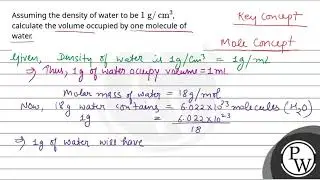 Assuming the density of water to be 1 g/cm³,
calculate the volume occupied by one molecule of
water.
Key Concept
Mole Concept
Given, Density of water is 1g/cm³ = 1g/mL
⇒ Thus, 1g of water occupy volume = 1mL
Molar mass of water = 18g/mol
Now, 18g water contains = 6.022×10²³ molecules (H₂O)
1g = 6.022×10²³
18
⇒ 1g of water will have
PW